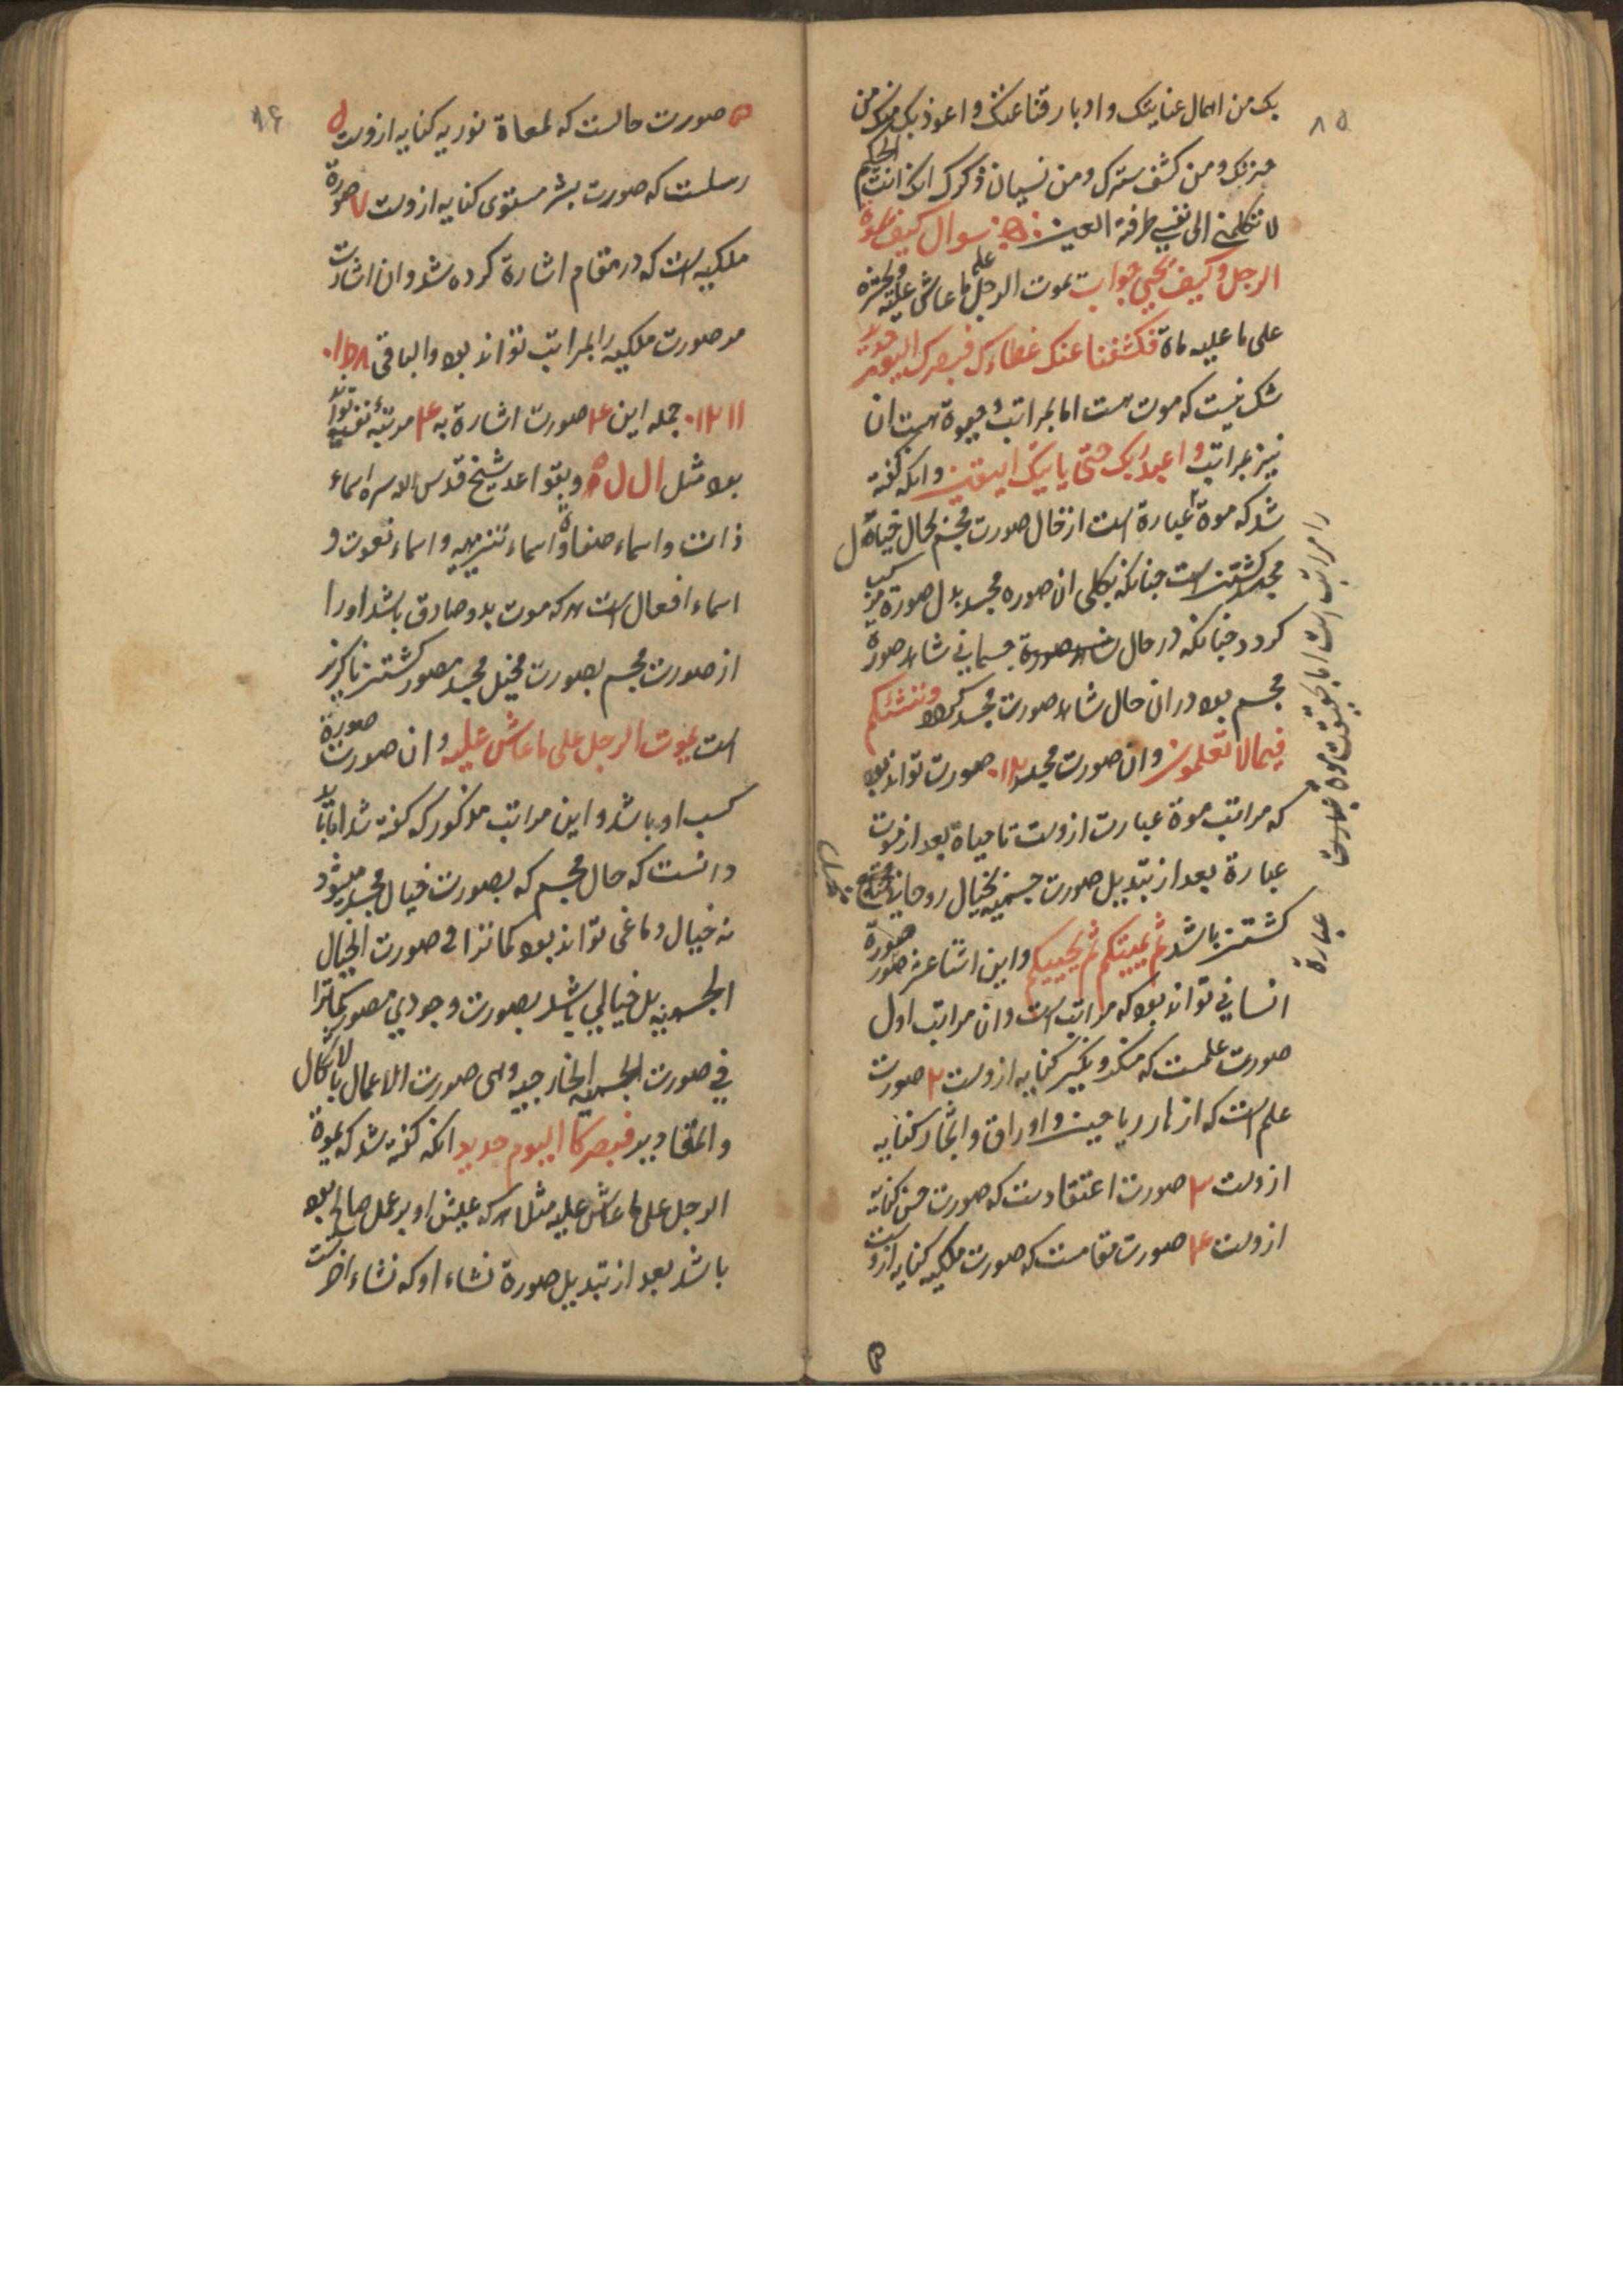 ٨٥
بک من اهمال عنایتک و ادبار قناعتک و اعوذ بک منک من
و من کشف سترک و من نسیان ذکرک انک انت الحکیم
لا تکلنی الی نفسی طرفة العین سوال کیف یموت
الرجل و کیف یحیی جواب یموت الرجل علی ما عاش علیه و یحشر
علی ما علیه ماة فکشفنا عنک غطاءک فبصرک الیوم حدید
شک نیست که موت هست اما بمراتب و حیوة هست ان
نیز بمراتب و اعبد ربک حتی یاتیک الیقین و انکه کفته
شد که موة عبارة است از حال صورت مجسم بحال حیاة
مجسد کشتن است چنانکه بکلی ان صوره مجسد بدل صورة
کردد چنانکه در حال جسمانی شاهد صورة
مجسم بود در ان حال شاهد صورت مجسد کردد و ننشئکم
فیما لا تعلمون و ان صورت مجسد ١٢ صورت تواند بود
که مراتب موة عبارت ازوست تا حیاة بعد از موت
عبارة بعد از تبدیل صورت جسمیه بخیال روحانی
کشتن باشد ثم یمیتکم ثم یحییکم و این اثنا عشر صورة
انسانی تواند بود که مراتب است و ان مراتب اول
صورت علمست که منکر و نکیر کنایه ازوست ٢ صورت
علم است که ازهار ریاحین و اوراق و اثمار کنایه
ازوست ٣ صورت اعتقادست که صورت حسن کنایه
ازوست ۴ صورت مقامست که صورت ملکیه کنایه ازوست
را مراتب است اما بحقیقت موة عبارة
٨۶
۵ صورت حالست که لمعاة نوریه کنایه ازوست
رسلست که صورت بشر مستوی کنایه ازوست ٧ صورة
ملکیه است که در مقام اشارة کرده شد و ان اشارت
مر صورت ملکیه را بمراتب تواند بود و الباقی ٨ ٩ ١٠
١١ ١٢ جمله این ۴ صورت اشارة به ۴ مرتبه تواند
بود مثل ال ل ه و بقواعد شیخ قدس الله سره اسماء
ذات و اسماء صفاة و اسماء تنزیهیه و اسماء نعوت و
اسماء افعال است هر که موت بدو صادق باشد او را
از صورت مجسم بصورت مخیل مجسد مصور کشتن ناکزیر
است یموت الرجل علی ما عاش علیه و ان صورت صورة
کسب او باشد و این مراتب مذکور که کفته شد اما باید
دانست که حال مجسم که بصورت خیال مجسد میشود
نه خیال دماغی تواند بود کما تری فی صورت الخیال
الجسمیه بل خیالی باشد بصورت وجودی مصور کما تری
فی صورت الجسمیه الخارجیه وهی صورت الاعمال بالاکمال
و المقادیر فبصرک الیوم حدید انکه کفته شد که یموة
الرجل علی ما عاش علیه مثلا هر که عیش او بر عمل صالح بوده
باشد بعد از تبدیل صورة نشاء او که نشاء اخرتست